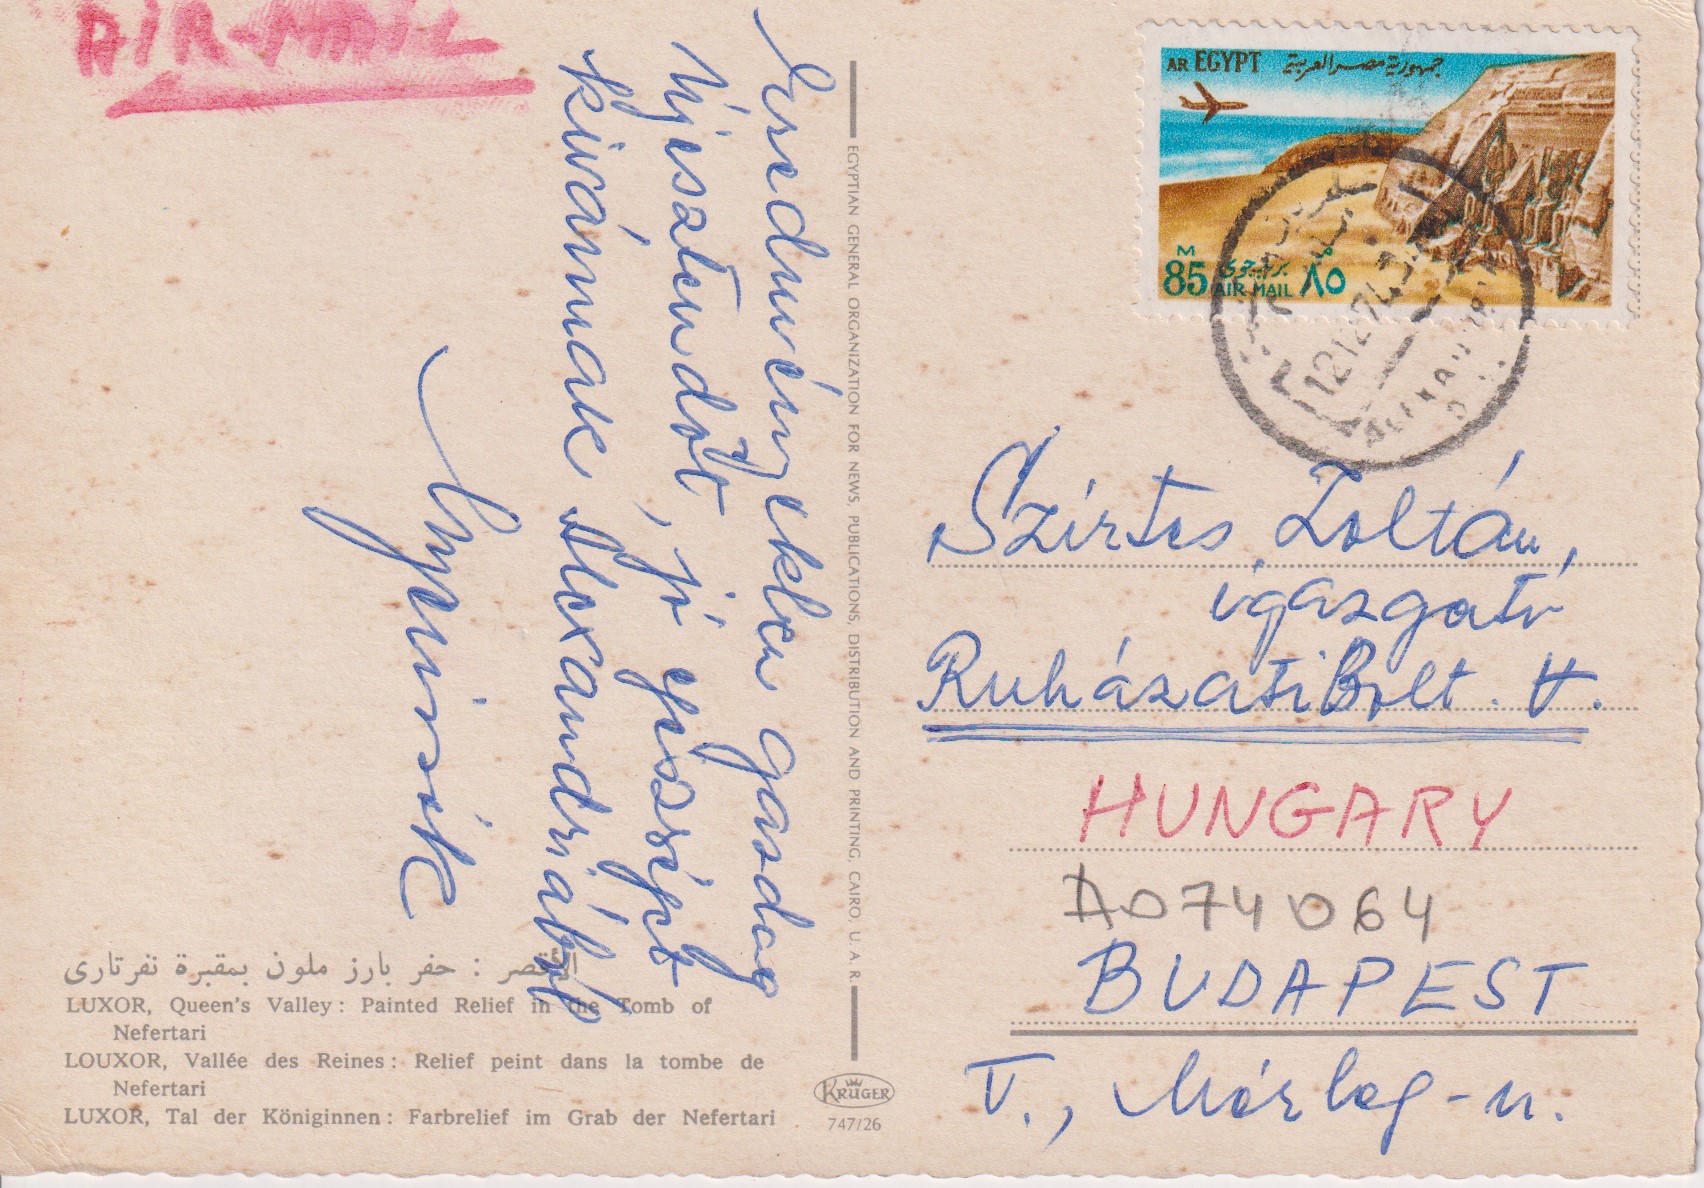 AIR-MAIL
Eredményekben gazdag
Újesztendőt, jó egészséget
kivánnak Alexandriából
AR EGYPT جمهورية مصر العربية
M
85 بريد جوى ٨٥
AIR MAIL
12.12.74
EGYPTIAN GENERAL ORGANIZATION FOR NEWS, PUBLICATIONS, DISTRIBUTION AND PRINTING, CAIRO, U. A. R.
Szirtes Zoltán,
igazgató
Ruházati Bolt. V.
HUNGARY
A074064
BUDAPEST
V., Mérleg-u.
الأقصر : حفر بارز ملون بمقبرة نفرتارى
LUXOR, Queen's Valley: Painted Relief in the Tomb of
Nefertari
LOUXOR, Vallée des Reines: Relief peint dans la tombe de
Nefertari
LUXOR, Tal der Königinnen: Farbrelief im Grab der Nefertari
KRÜGER
747/26